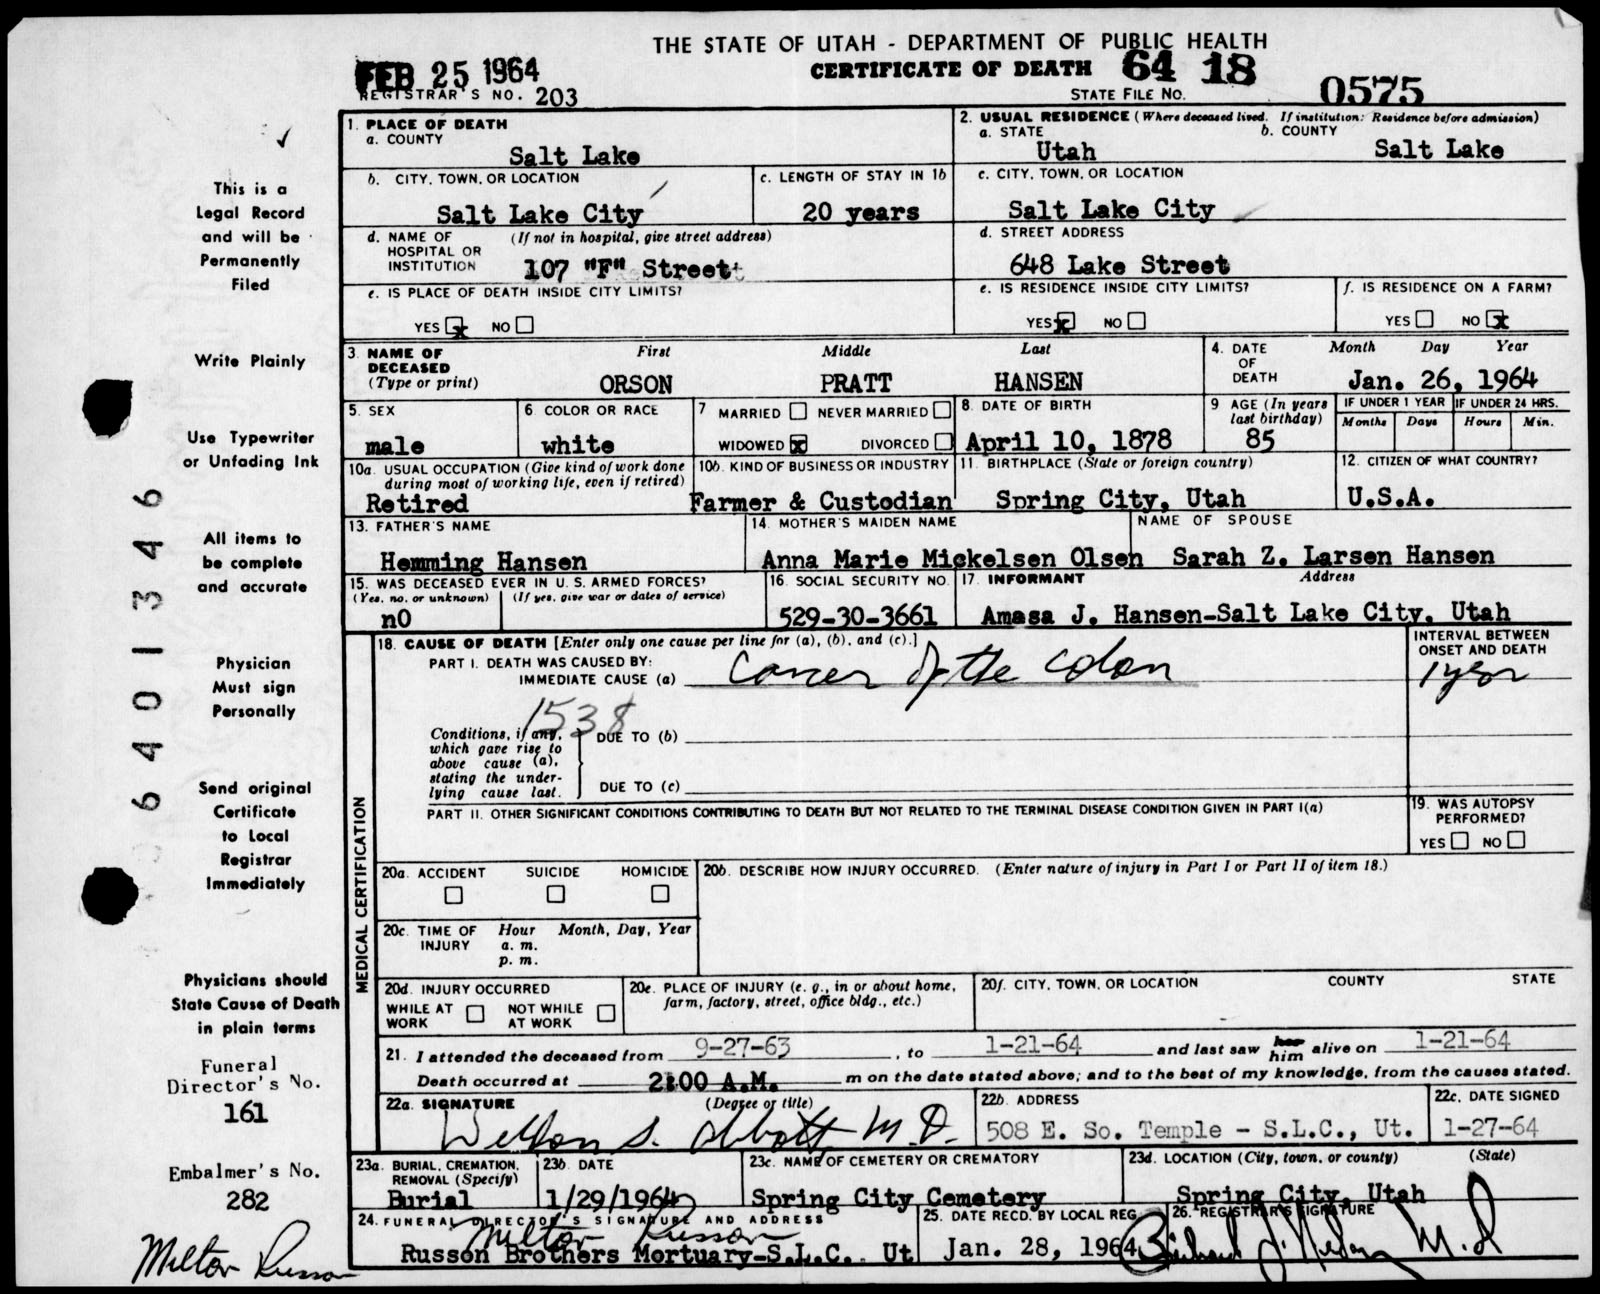 THE STATE OF UTAH - DEPARTMENT OF PUBLIC HEALTH
FEB 25 1964 CERTIFICATE OF DEATH 64 18
REGISTRAR'S NO. 203 STATE FILE NO. 0575
1. PLACE OF DEATH
a. COUNTY
Salt Lake
2. USUAL RESIDENCE (Where deceased lived. If institution: Residence before admission)
a. STATE b. COUNTY
Utah Salt Lake
b. CITY, TOWN, OR LOCATION
Salt Lake City
c. LENGTH OF STAY IN 1b
20 years
c. CITY, TOWN, OR LOCATION
Salt Lake City
d. NAME OF (If not in hospital, give street address)
HOSPITAL OR
INSTITUTION 107 "F" Street
d. STREET ADDRESS
648 Lake Street
e. IS PLACE OF DEATH INSIDE CITY LIMITS?
YES x NO
e. IS RESIDENCE INSIDE CITY LIMITS?
YES x NO
f. IS RESIDENCE ON A FARM?
YES NO x
3. NAME OF First Middle Last
DECEASED
(Type or print) ORSON PRATT HANSEN
4. DATE Month Day Year
OF
DEATH Jan. 26, 1964
5. SEX
male
6. COLOR OR RACE
white
7 MARRIED NEVER MARRIED
WIDOWED x DIVORCED
8. DATE OF BIRTH
April 10, 1878
9 AGE (In years
last birthday)
85
IF UNDER 1 YEAR IF UNDER 24 HRS.
Months Days Hours Min.
10a. USUAL OCCUPATION (Give kind of work done
during most of working life, even if retired)
Retired
10b. KIND OF BUSINESS OR INDUSTRY
Farmer & Custodian
11. BIRTHPLACE (State or foreign country)
Spring City, Utah
12. CITIZEN OF WHAT COUNTRY?
U.S.A.
13. FATHER'S NAME
Hemming Hansen
14. MOTHER'S MAIDEN NAME
Anna Marie Mickelsen Olsen
NAME OF SPOUSE
Sarah Z. Larsen Hansen
15. WAS DECEASED EVER IN U.S. ARMED FORCES?
(Yes, no, or unknown) (If yes, give war or dates of service)
nO
16. SOCIAL SECURITY NO.
529-30-3661
17. INFORMANT Address
Amasa J. Hansen-Salt Lake City, Utah
MEDICAL CERTIFICATION
18. CAUSE OF DEATH [Enter only one cause per line for (a), (b), and (c).]
PART I. DEATH WAS CAUSED BY:
IMMEDIATE CAUSE (a) Cancer of the Colon
INTERVAL BETWEEN
ONSET AND DEATH
1 year
1538
Conditions, if any,
which gave rise to
above cause (a),
stating the under-
lying cause last.
DUE TO (b)
DUE TO (c)
PART II. OTHER SIGNIFICANT CONDITIONS CONTRIBUTING TO DEATH BUT NOT RELATED TO THE TERMINAL DISEASE CONDITION GIVEN IN PART I(a)
19. WAS AUTOPSY
PERFORMED?
YES NO
20a. ACCIDENT SUICIDE HOMICIDE
20b. DESCRIBE HOW INJURY OCCURRED. (Enter nature of injury in Part I or Part II of item 18.)
20c. TIME OF Hour Month, Day, Year
INJURY a. m.
p. m.
20d. INJURY OCCURRED
WHILE AT NOT WHILE
WORK AT WORK
20e. PLACE OF INJURY (e. g., in or about home,
farm, factory, street, office bldg., etc.)
20f. CITY, TOWN, OR LOCATION COUNTY STATE
21. I attended the deceased from 9-27-63, to 1-21-64 and last saw her him alive on 1-21-64
Death occurred at 2:00 A.M. m on the date stated above; and to the best of my knowledge, from the causes stated.
22a. SIGNATURE (Degree or title)
Welton S. Abbott M.D.
22b. ADDRESS
508 E. So. Temple - S.L.C., Ut.
22c. DATE SIGNED
1-27-64
23a. BURIAL, CREMATION,
REMOVAL (Specify)
Burial
23b. DATE
1/29/1964
23c. NAME OF CEMETERY OR CREMATORY
Spring City Cemetery
23d. LOCATION (City, town, or county) (State)
Spring City, Utah
24. FUNERAL DIRECTOR'S SIGNATURE AND ADDRESS
Milton Russon
Russon Brothers Mortuary-S.L.C. Ut
25. DATE RECD. BY LOCAL REG.
Jan. 28, 1964
26. REGISTRAR'S SIGNATURE
M.D
This is a
Legal Record
and will be
Permanently
Filed
Write Plainly
Use Typewriter
or Unfading Ink
All items to
be complete
and accurate
Physician
Must sign
Personally
Send original
Certificate
to Local
Registrar
Immediately
Physicians should
State Cause of Death
in plain terms
Funeral
Director's No.
161
Embalmer's No.
282
Milton Russon
6401346